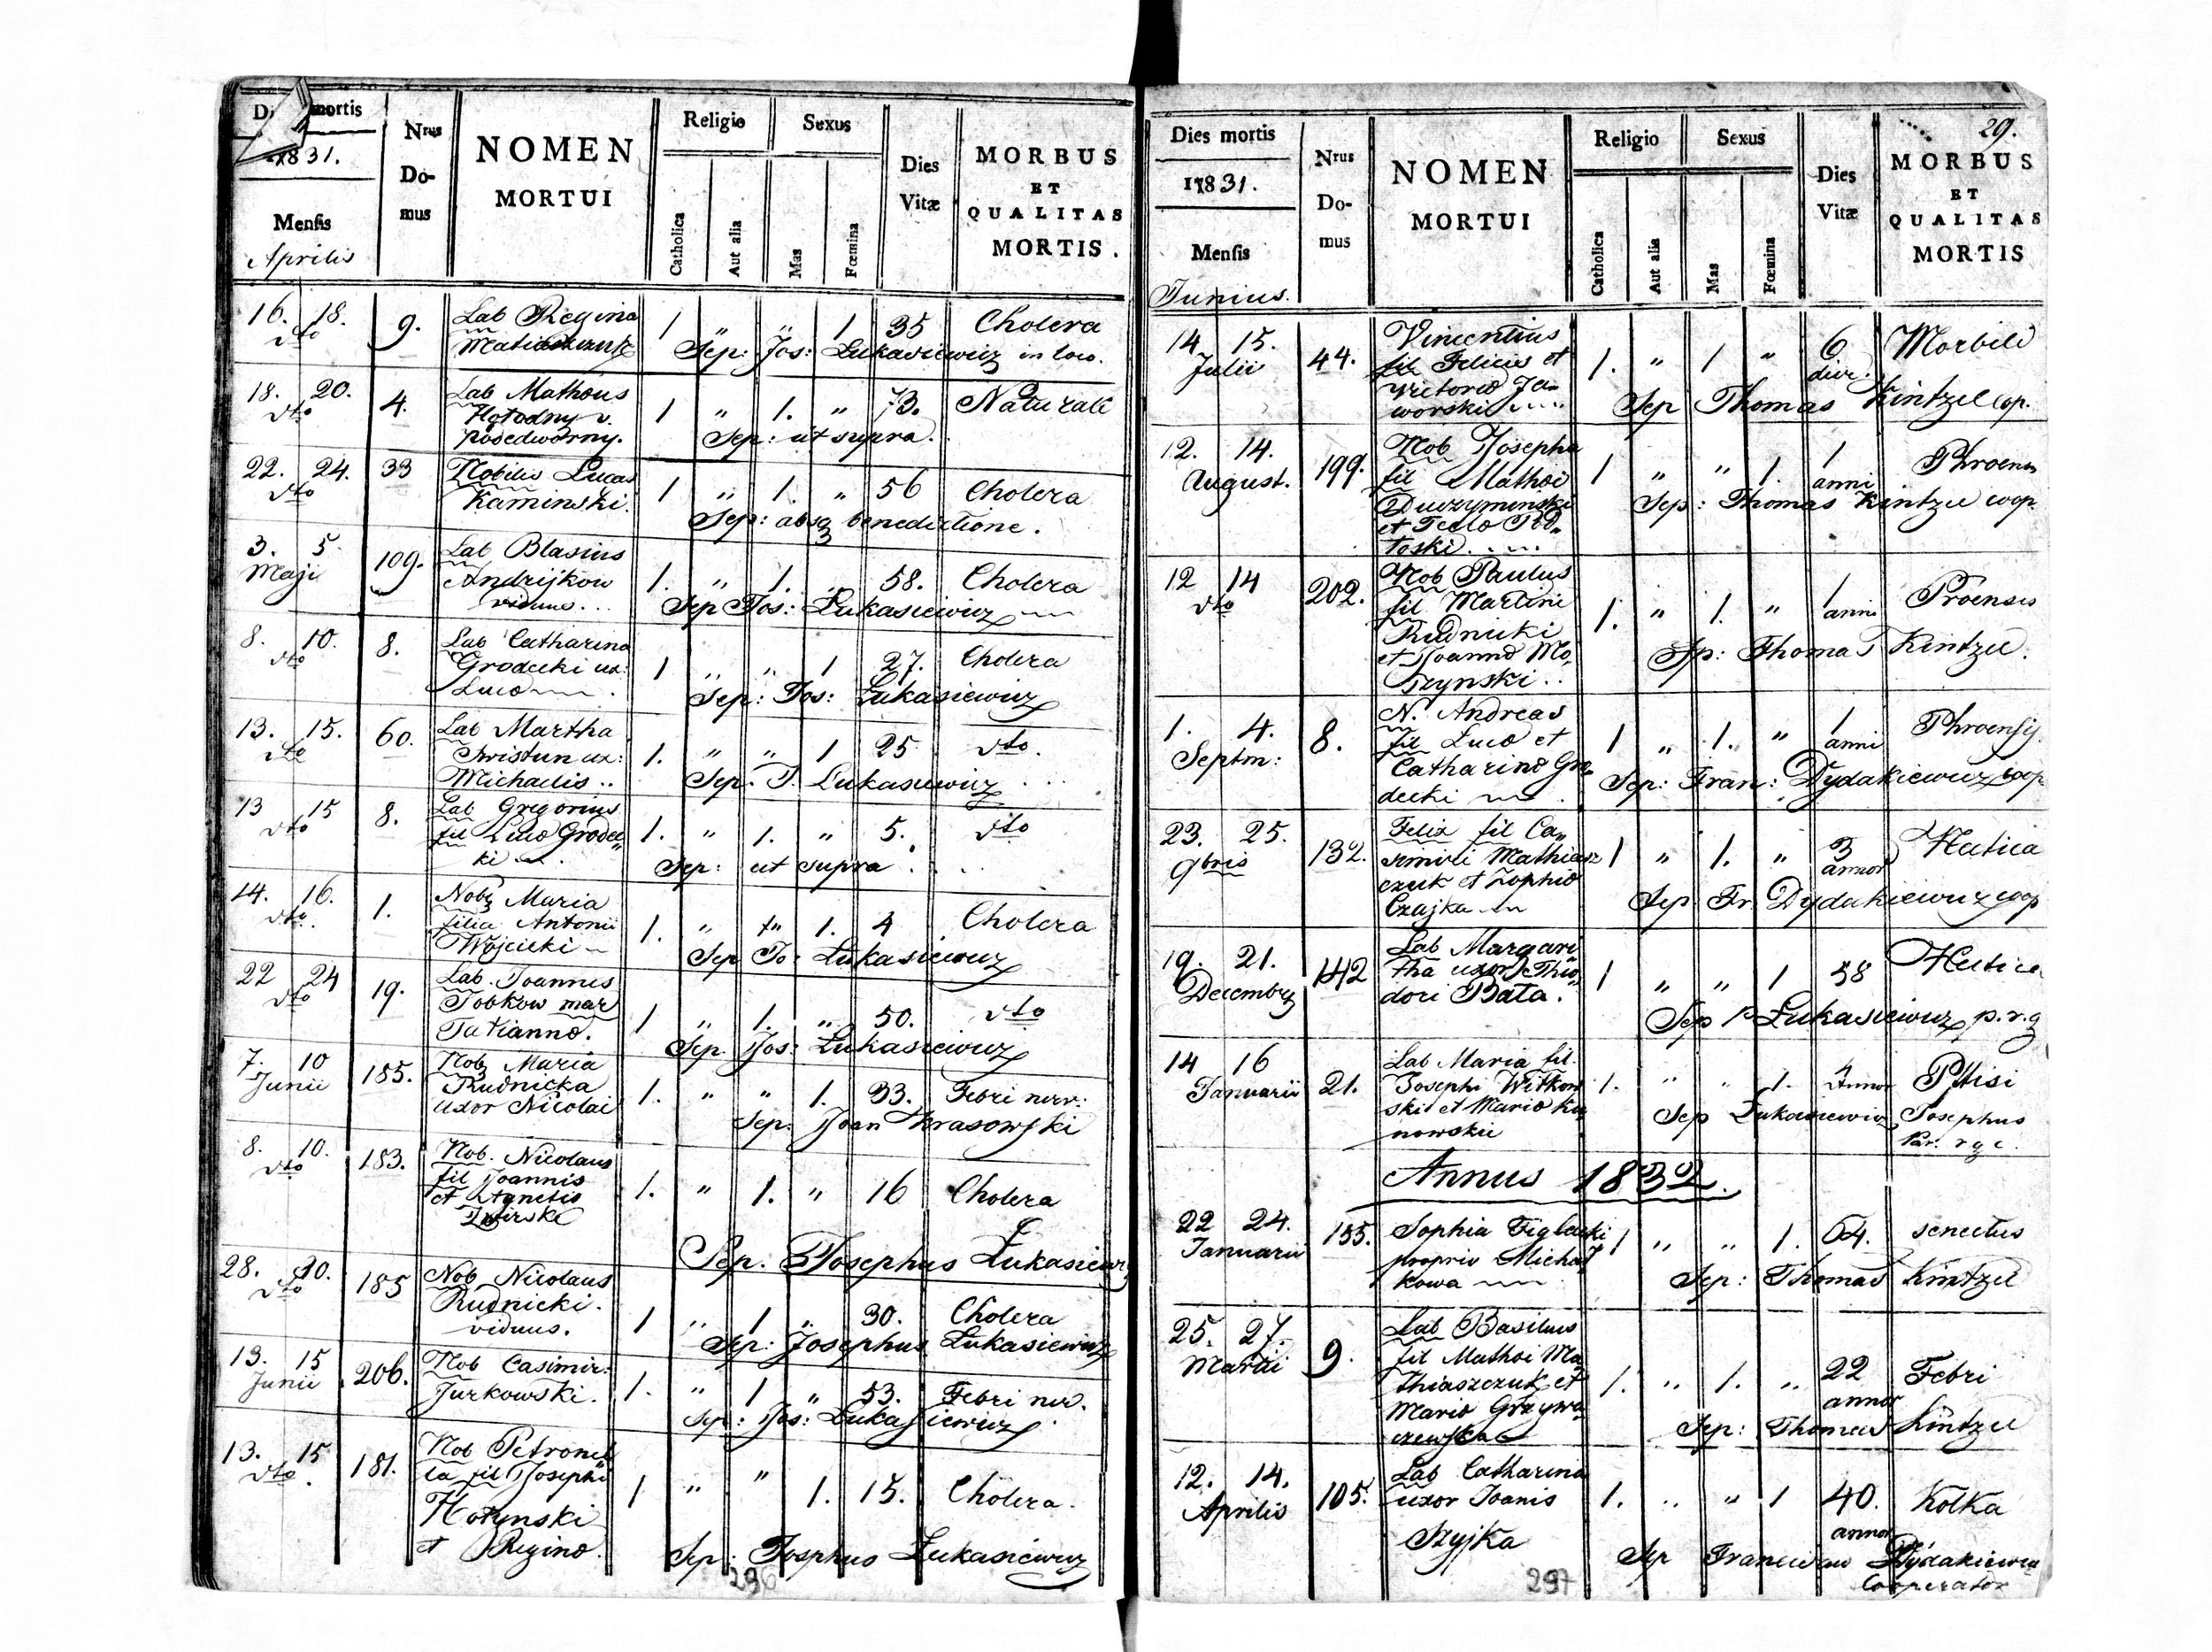 Dies mortis
1831.
Mensis
Aprilis
Nrus
Do-
mus
NOMEN
MORTUI
Religio
Catholica
Aut alia
Sexus
Mas
Fœmina
Dies
Vitæ
MORBUS
ET
QUALITAS
MORTIS.
16. 18. 9. Lab Regina 1 „ „ 1 35 Cholera
dto
Sep: Jos: Lukasiewicz in loco.
18. 20. 4. Lab Matheus 1 „ 1. „ 73. Naturale
dto Hołodny v.
podedworny. Sep: ut supra.
22. 24. 33 Nobilis Lucas 1 „ 1. „ 56 Cholera
dto Kaminski.
Sep: absq benedictione.
3. 5. 109. Lab Blasius
Maji Andrijkow 1. „ 1. „ 58. Cholera
viduus... Sep Jos: Lukasiewicz
8. 10. 8. Lab Catharina
dto Grodecki ux: 1 „ „ 1 27. Cholera
Luca Sep: Jos: Lukasiewicz
13. 15. 60. Lab Martha
dto ux: 1. „ „ 1 25 dto.
Michaelis.. Sep: J. Lukasiewicz
13 15 8. Lab Gregorius
dto fil Luca Grodec„ 1. „ 1. „ 5. dto
ki Sep: ut supra
14. 16. 1. Nob Maria
dto. filia Antonii 1. „ „ 1. 4 Cholera
Wojcicki Sep Jo: Lukasiewicz
22 24 19. Lab. Joannes
dto Tobkow mar
Tatianna. 1 „ 1. „ 50. dto
Sep. Jos: Lukasiewicz
7. 10 185. Nob Maria
Junii Rudnicka
uxor Nicolai 1. „ „ 1. 33. Febri nerv.
Sep. Joan Krasowski
8. 10. 183. Nob. Nicolaus
dto fil Joannis
et Agnetis 1. „ 1. „ 16 Cholera
Sep. Josephus Lukasiewicz
28. 30. 185 Nob Nicolaus
dto Rudnicki.
viduus. 1 „ 1 „ 30. Cholera
Sep: Josephus Lukasiewicz
13. 15 206. Nob Casimir:
Junii Jurkowski. 1. „ 1 „ 53. Febri nerv.
Sep: Jos: Lukasiewicz
13. 15 181. Nob Petronel
dto. la fil Josephi 1 „ „ 1. 15. Cholera.
Hołynski
et Regina. Sep: Josephus Lukasiewicz
296
29.
Dies mortis
1831.
Mensis
Junius.
Nrus
Do-
mus
NOMEN
MORTUI
Religio
Catholica
Aut alia
Sexus
Mas
Fœmina
Dies
Vitæ
MORBUS
ET
QUALITAS
MORTIS
14 15. 44. Vincentius 1. „ 1 „ 6 Morbili
Julii fil Felicis et
Victoria Ja-
worskie Sep Thomas Kintzel cop.
12. 14. 199. Nob Josepha 1 „ „ 1. 1
August. fil Mathei anni
Sep: Thomas Kintzel coop.
et Tecla Pod-
12 14 202. Nob Paulus 1. „ 1. „ 1
dto fil Martini anni
Rudnicki
et Joanna Mo,
Sep: Thomas Kintzel.
1. 4. 8. N. Andreas 1 „ 1. „ 1
Septm: fil Luca et anni
Catharina Gro
decki Sep: Fran: Dydakiewicz coop
23. 25. 132. Felix fil Ca„ 1 „ 1. „ 3 Hectica
9bris simiri annor
czuk et Zophia
Czajka Sep Fr. Dydakiewicz coop
19. 21. 142 Lab Margari 1 „ „ 1 58 Hectica
Decembr tha uxor Theo„
dori Bata. Sep Lukasiewicz p.r.g
14 16 21. Lab Maria fil. 1. „ „ 1. 4
Januarii Josephi Witkow
ski et Maria Sep Lukasiewicz Josephus
nowskie Par. r g c.
Annus 1832.
22 24. 155. Sophia 1 „ „ 1. 64. senectus
Januarii proprio Michał
kowa Sep: Thomas Kintzel
25. 27. 9. Lab Basilius
Martii fil Mathei Ma
thiaszczuk et 1. „ 1. „ 22 Febri
Maria Grzywa annor
czewska Sep: Thomas Kintzel
12. 14. 105. Lab Catharina
Aprilis uxor Joanis 1. „ „ 1 40. Kolka
Szyjka annor
Sep Dydakiewicz
Cooperator
297